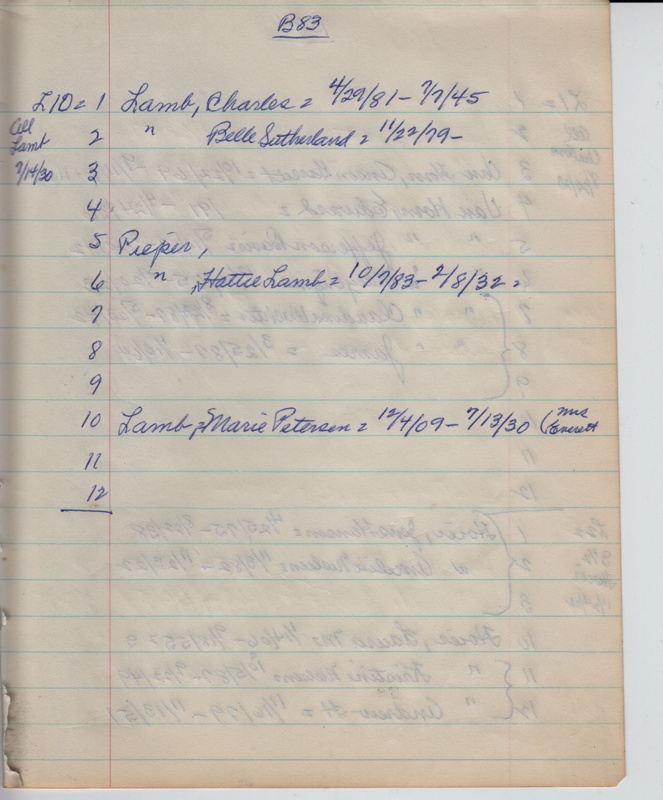 B83
L10 = 1 Lamb, Charles = 4/29/81 - 7/7/45
All Lamb 2 " Belle Sutherland = 11/22/79 -
7/14/30 3
4
5 Pieper,
6 " , Hattie Lamb = 10/7/83 - 2/8/32 =
7
8
9
10 Lamb, Marie Petersen = 12/4/09 - 7/13/30 (Mrs Everett
11
12